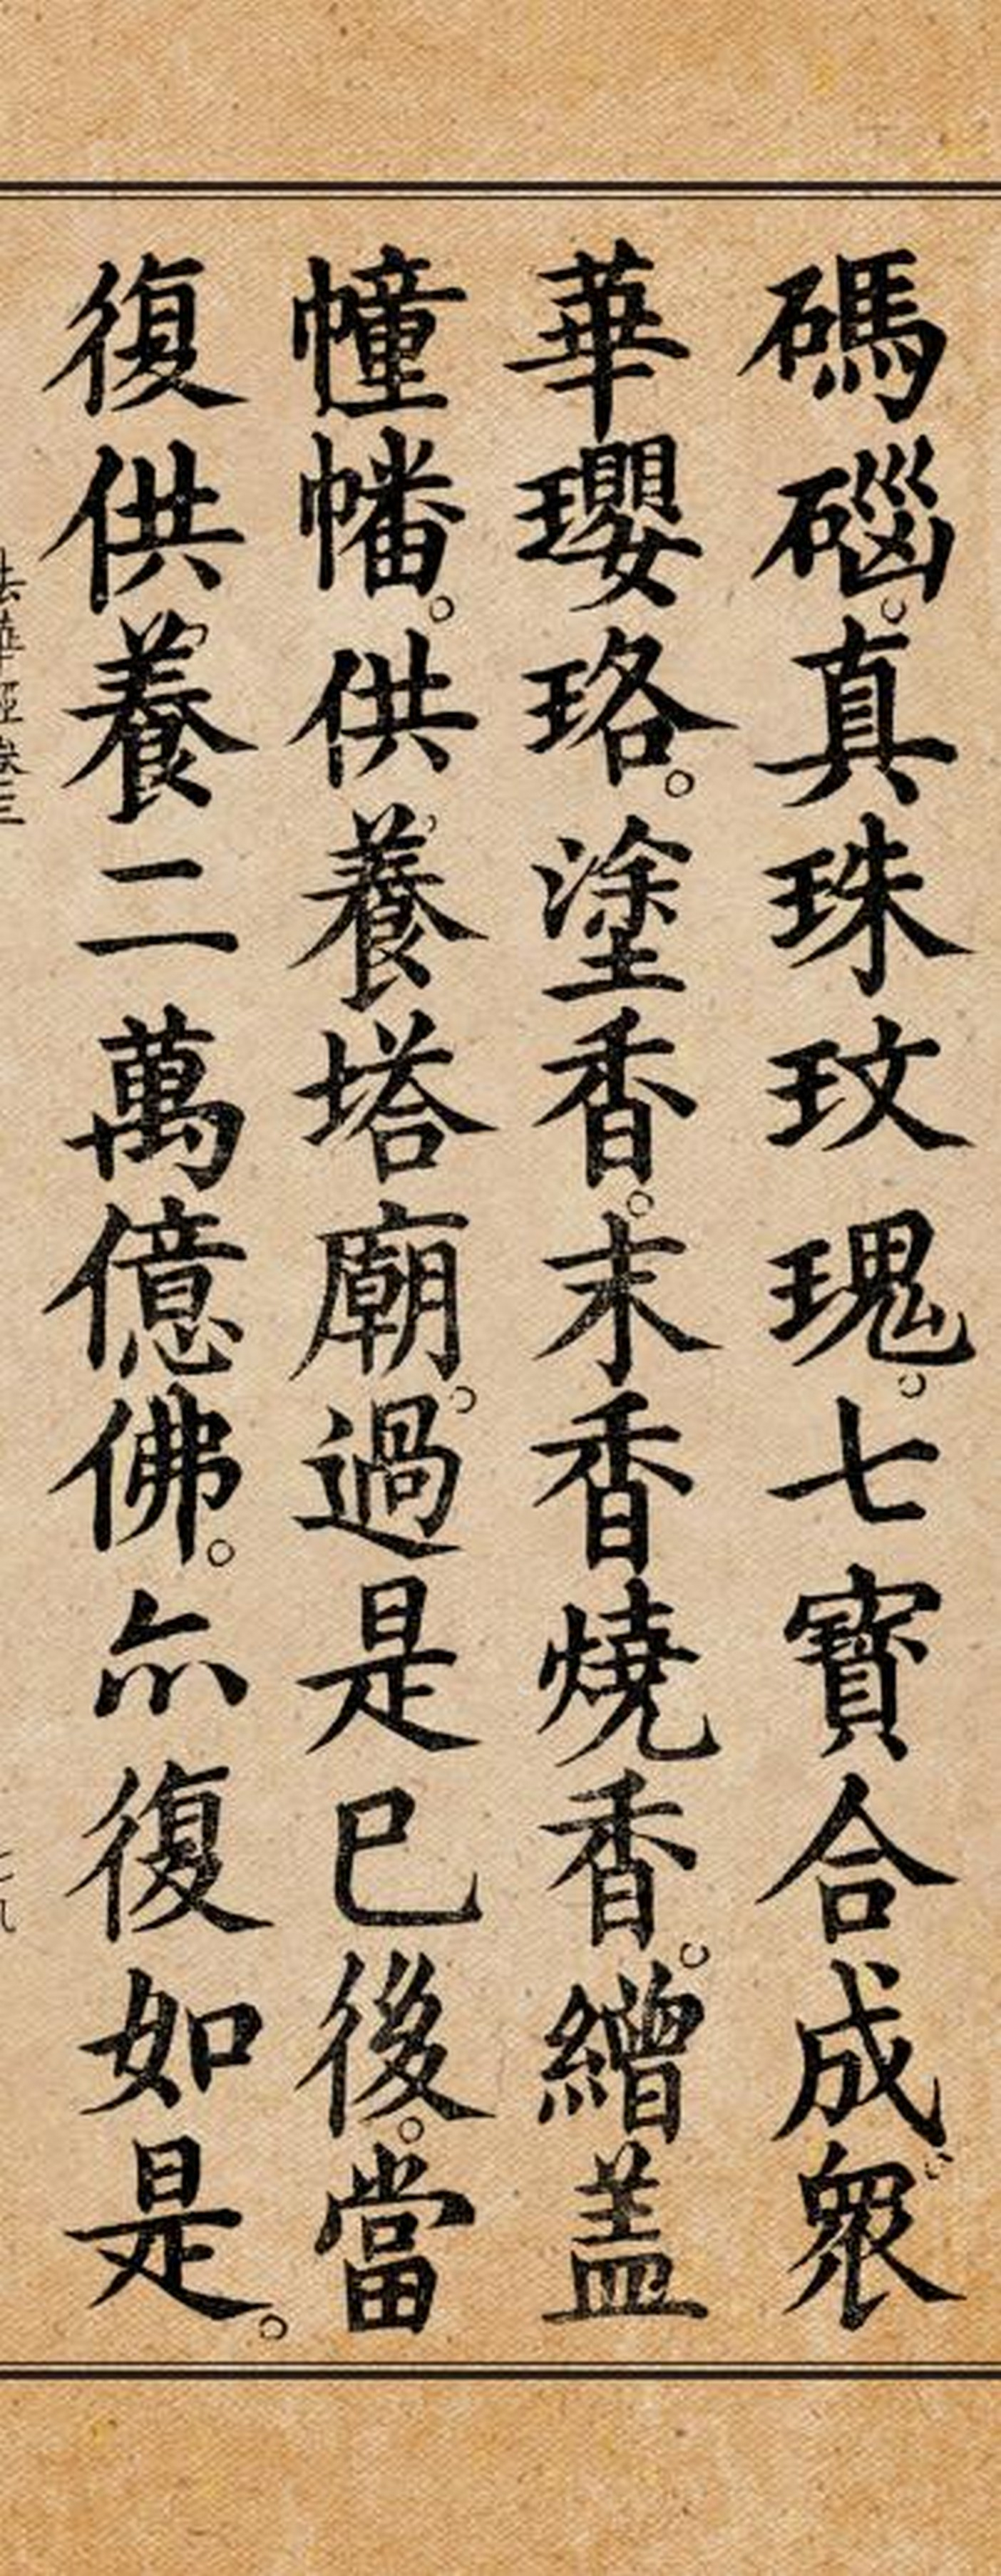 碼碯。真珠玫瑰。七寶合成。眾
華瓔珞。塗香。末香燒香。繒盖
幢幡。供養塔廟。過是已後。當
復供養二萬億佛。亦復如是。
法華經卷三